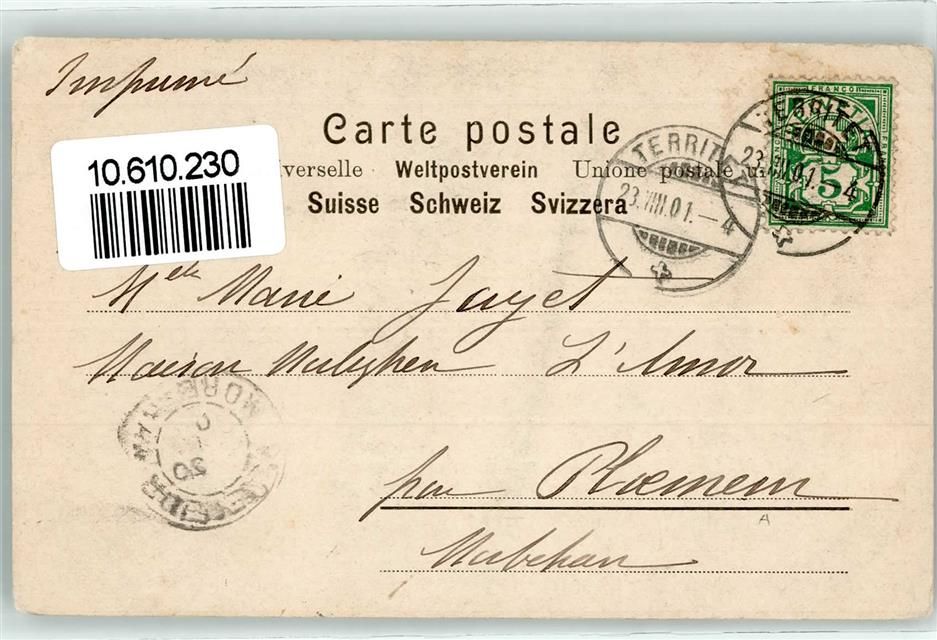 Imprimé
Carte postale
10.610.230
verselle Weltpostverein Unione postale un
Suisse Schweiz Svizzera
TERRITET
23.VIII.01.–4
TERRITET
23.VIII.01.–4
FRANCO
5
Mlle Marie Jayet
Maison L'Amor
par Ploemeur
Morbihan